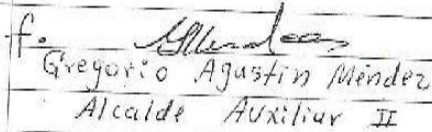 f.
Gregorio Agustin Méndez
Alcalde Auxiliar II